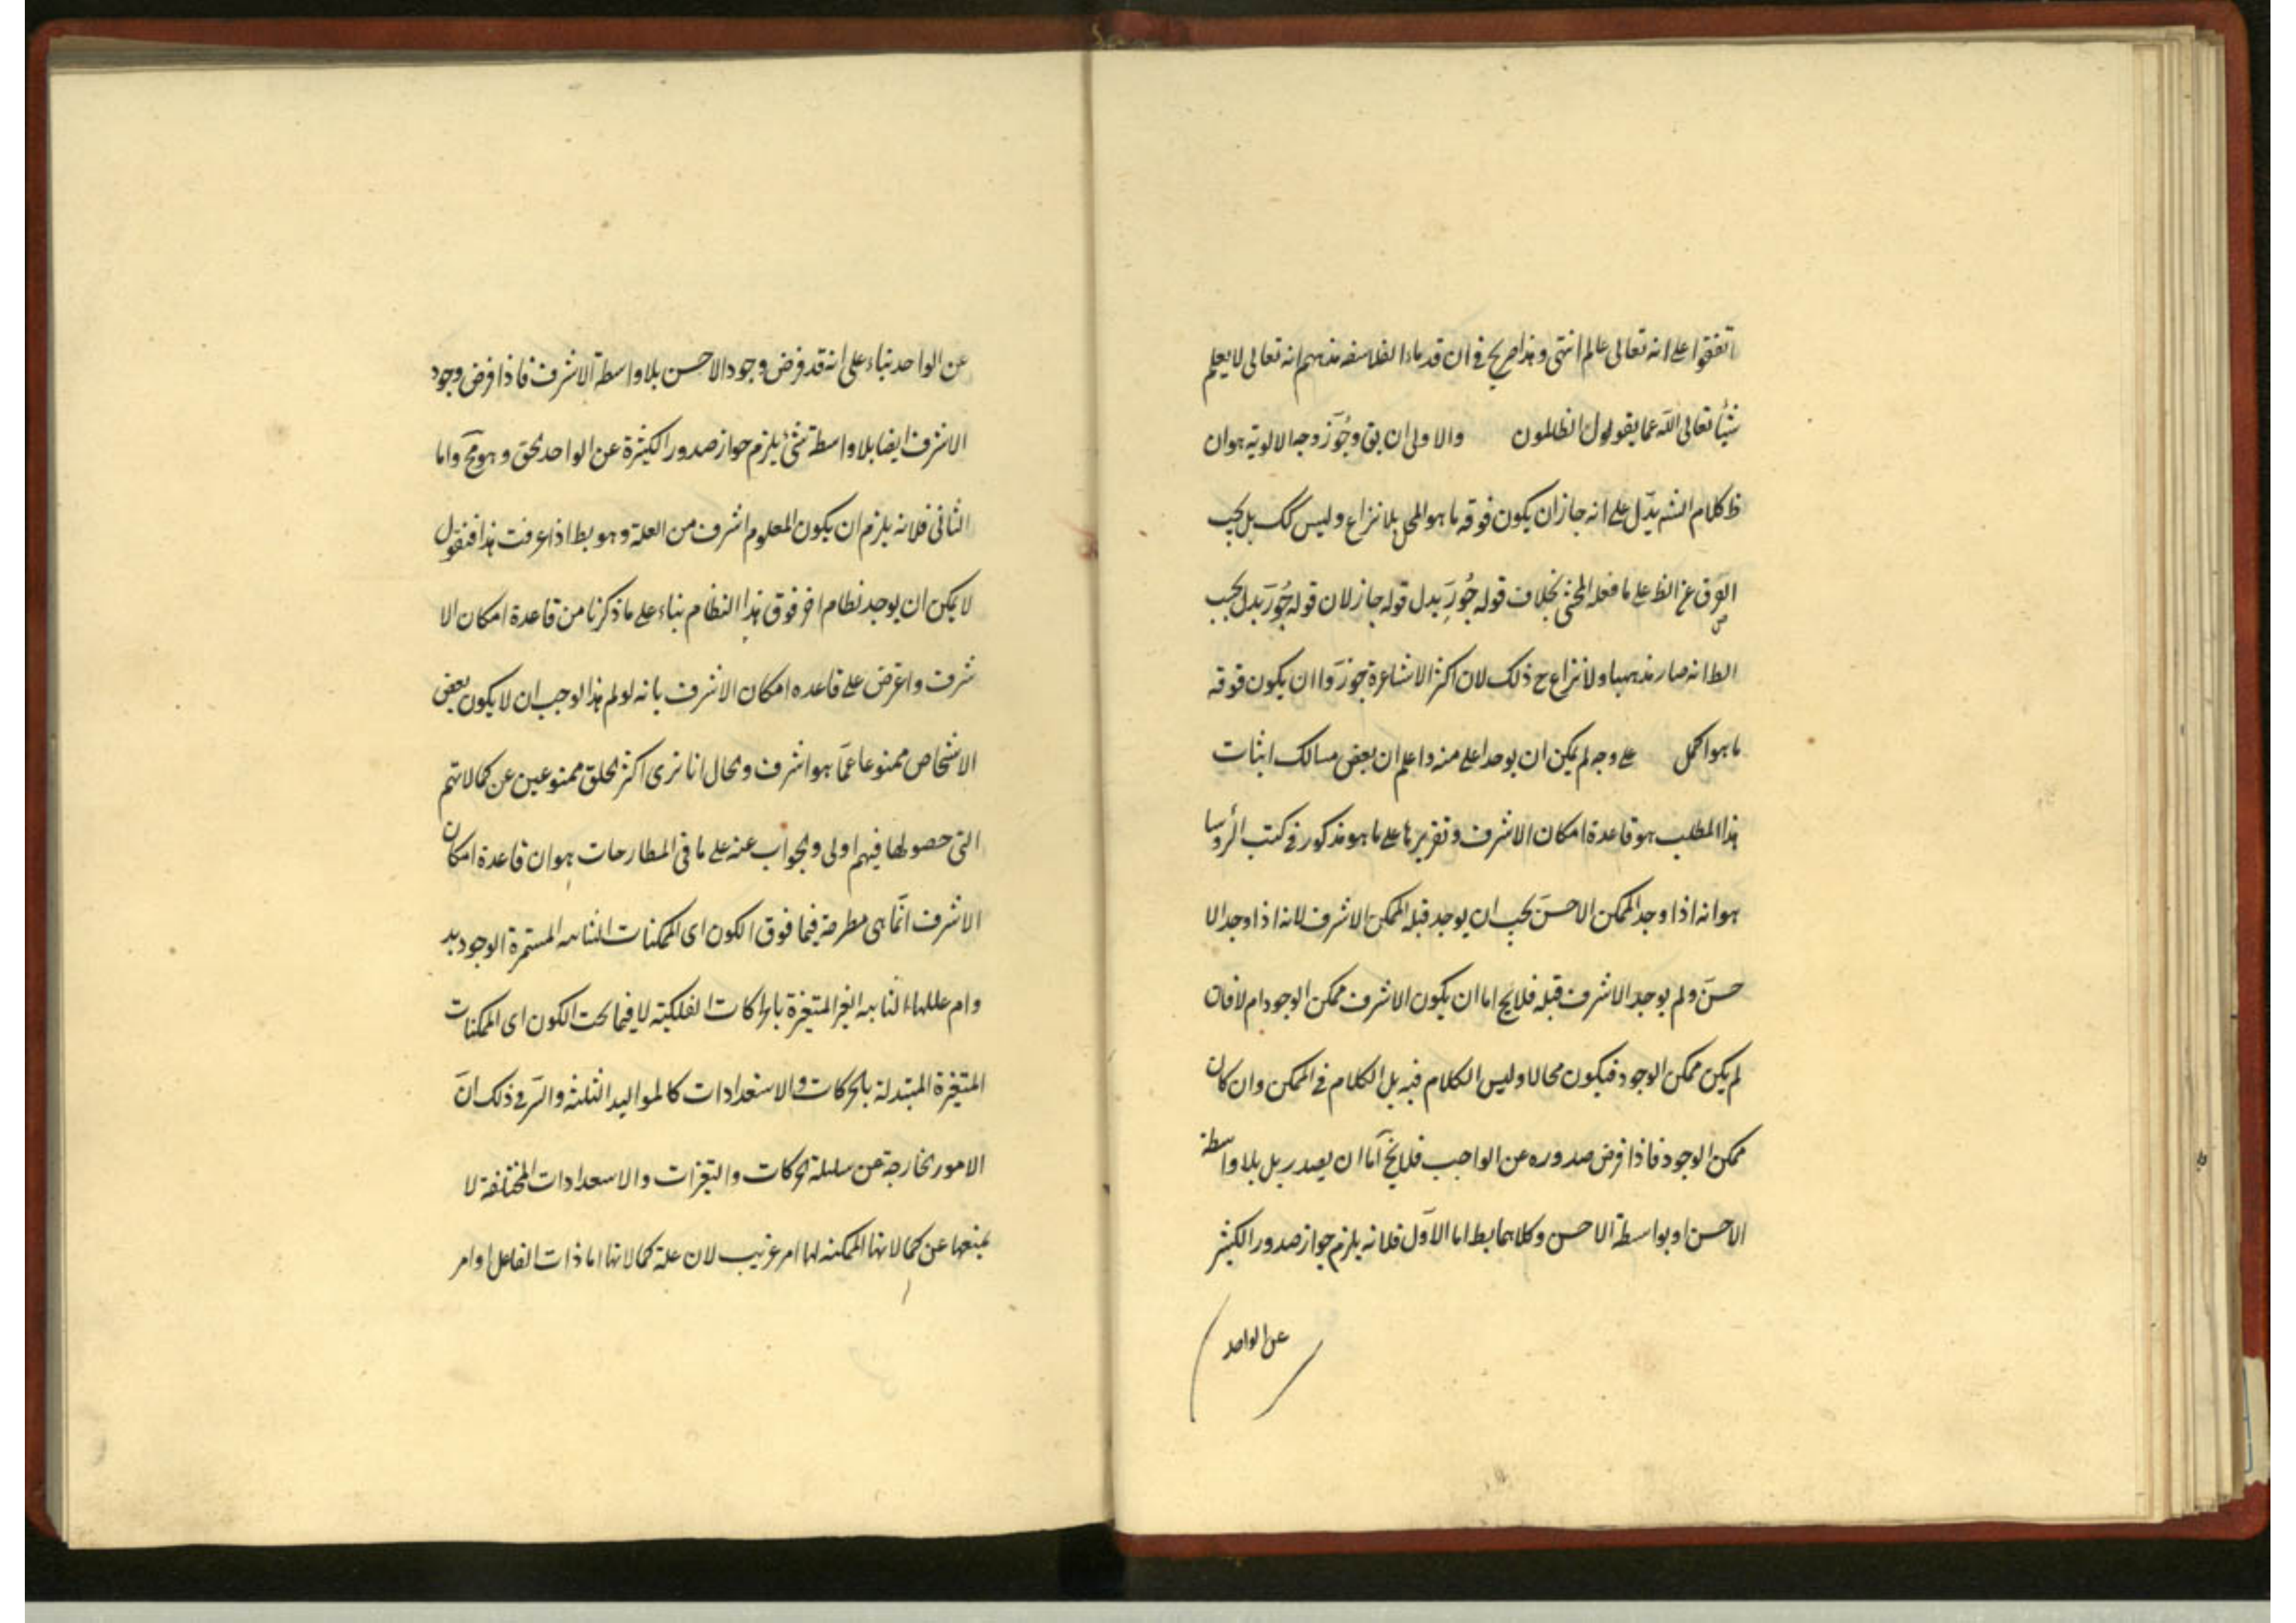 اتفقوا على انه تعالى عالم انتهى وهذا صريح في ان قدماء الفلاسفه مذهبهم انه تعالى لا يعلم
شيأ تعالى الله عما يقولون الظالمون والاولى ان يق وجُوّز وجه الالوية هو ان
ظ كلام الشه يدّل على انه جاز ان يكون فوقه ما هو اكمل بلا نزاع وليس كك بل يجب
على ما فعله المحشى بخلاف قوله جُوّز بدل قوله جاز لان قوله جُوّز بدل يجب
الظ انه صار مذهبا ولا نزاع ح ذلك لان اكثر الاشاعرة جوزّوا ان يكون فوقه
ما هو اكمل على وجه لم يكن ان يوجد اعلى منه واعلم ان بعض مسالك اثبات
هذا المطلب هو قاعدة امكان الاشرف وتقريرها على ما هو مذكور في كتب الرؤسا
هو انه اذا وجد الممكن الاحسن يجب ان يوجد قبله الممكن الاشرف لانه اذا وجد الا
حسن ولم يوجد الاشرف قبله فلا يخ اما ان يكون الاشرف ممكن الوجود ام لا فان
لم يكن ممكن الوجود فيكون محالا وليس الكلام فيه بل الكلام في الممكن وان كان
ممكن الوجود فاذا فرض صدوره عن الواجب فلا يخ اما ان يصدر بل بلا واسطة
الاحسن او بواسطة الاحسن وكلاهما بط اما الاوّل فلانه يلزم جواز صدور الكثير
عن الواحد
عن الواحد بناء على انه قد فرض وجود الاحسن بلا واسطة الاشرف فاذا فرض وجود
الاشرف ايضا بلا واسطة شئ يلزم جواز صدور الكثرة عن الواحد الحق وهو مح واما
الثانى فلانه يلزم ان يكون المعلوم اشرف من العلة وهو بط اذا عرفت هذا فنقول
لا يمكن ان يوجد نظام اخر فوق هذا النظام بناء على ما ذكرنا من قاعدة امكان الا
شرف واعترض على قاعده امكان الاشرف بانه لو لم هذا لوجب ان لا يكون بعض
الاشخاص ممنوعا عمّا هو اشرف والحال انا نرى اكثر الخلق ممنوعين عن كمالاتهم
التى حصولها فيهم اولى والجواب عنه على ما فى المطارحات هو ان قاعدة امكان
الاشرف انمّا هى مطرحة فيما فوق الكون اى الممكنات الثابته المستمرة الوجود بد
وام عللها الثابته الغير المتغيرة بالحركات الفلكية لا فيما تحت الكون اى الممكنات
المتغيرة المبتدلة بالحركات والاستعدادات كالمواليد الثلثه والسّر في ذلك انّ
الامور الخارجة عن سلسلة الحركات والتغيرات والاستعدادات المختلفة لا
يمنعها عن كمالاتها الممكنه لها امر غريب لان علة كمالاتها اما ذات الفاعل او امر